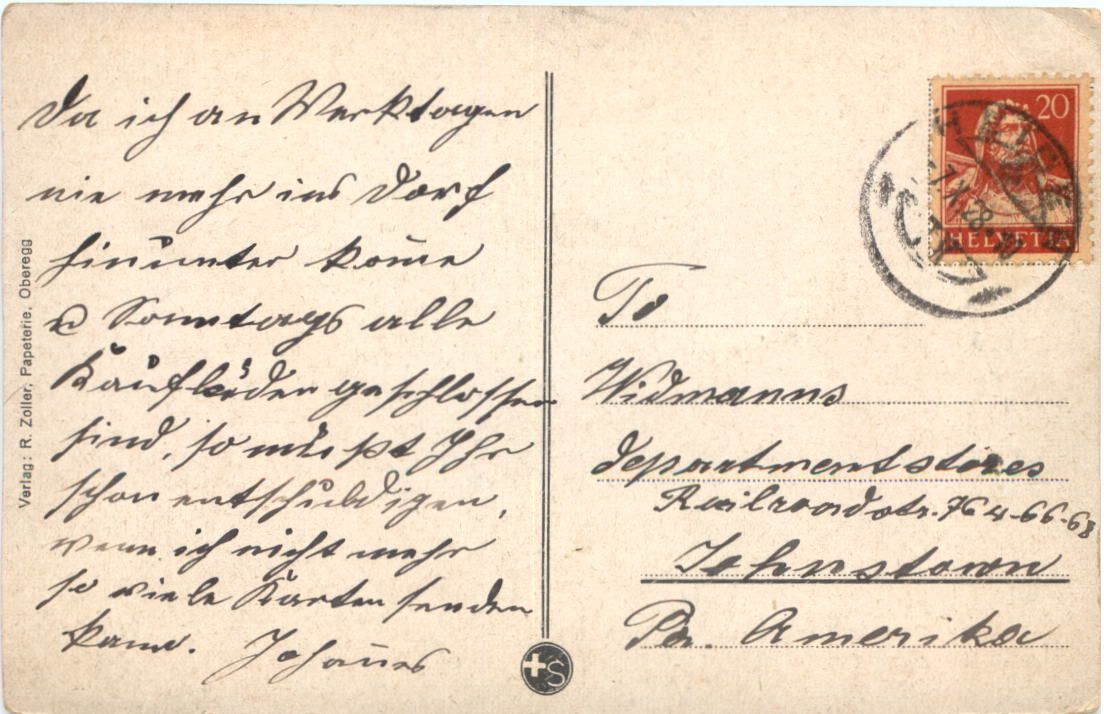 Da ich an Werktagen
nie mehr ins Dorf
hinunter kom̄e
u Sonntags alle
Kaufläden geschlossen
sind, so müßt Ihr
schon entschuldigen,
wenn ich nicht mehr
so viele Karten senden
kann. Johannes
Verlag: R. Zoller, Papeterie, Oberegg
20
HELVETIA
To
Widmanns
Departmentstores
Railroadstr.
Johnstown
Pa. Amerika
+S